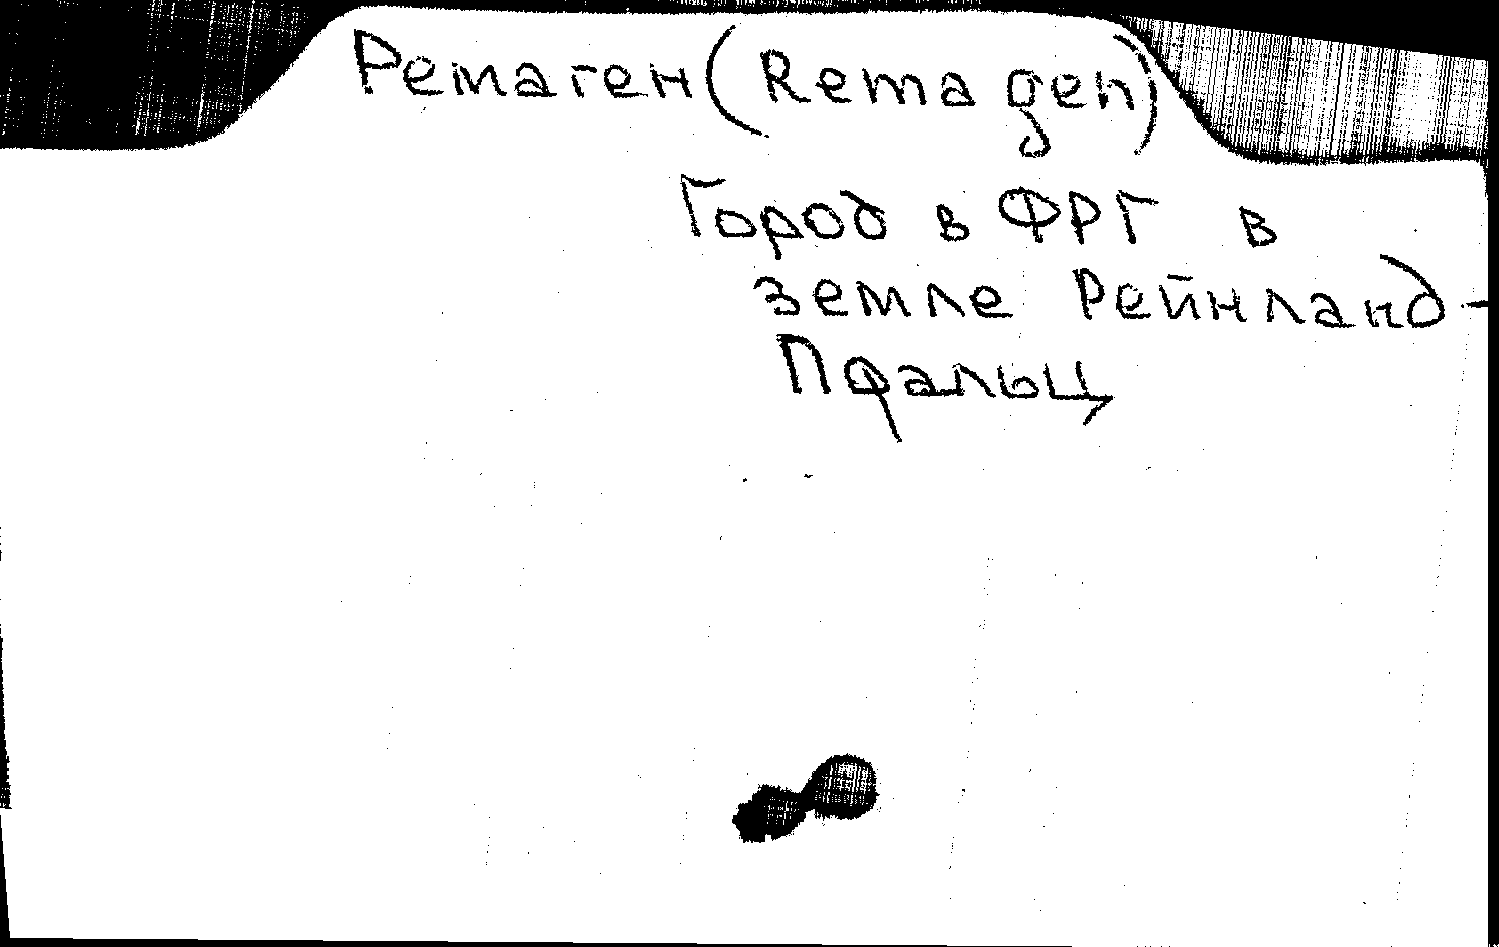 Ремаген (Remagen)
Город в ФРГ в
земле Рейнланд-
Пфальц